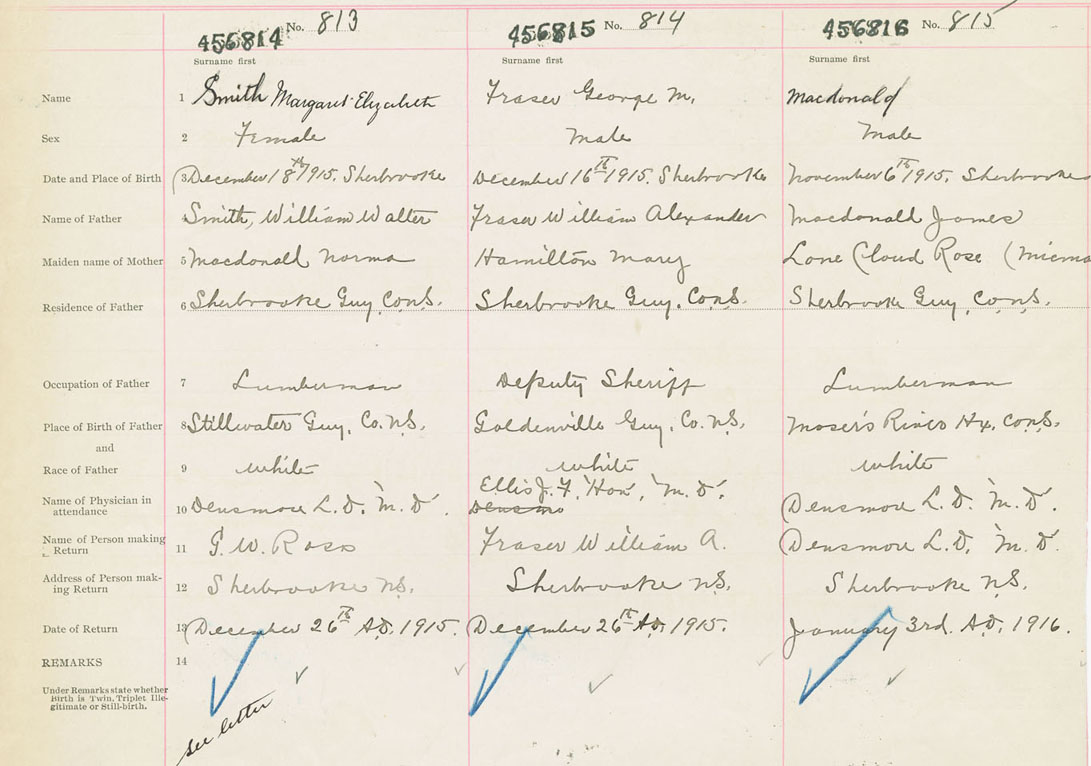 No. 813
456814
Surname first
No. 814
456815
Surname first
No. 815
456816
Surname first
Name 1 Smith Margaret Elizabeth Fraser George M. Macdonald
Sex 2 Female Male Male
Date and Place of Birth 3 December 18th 1915. Sherbrooke December 16th 1915. Sherbrooke November 6th 1915. Sherbrooke
Name of Father 4 Smith, William Walter Fraser William Alexander Macdonald James
Maiden name of Mother 5 Macdonald Norma Hamilton Mary Lone Cloud Rose (Micma
Residence of Father 6 Sherbrooke Guy. Co. N.S. Sherbrooke Guy. Co. N.S. Sherbrooke Guy. Co. N.S.
Occupation of Father 7 Lumberman Deputy Sheriff Lumberman
Place of Birth of Father 8 Stillwater Guy. Co. N.S. Goldenville Guy. Co. N.S. Moser's River Hx. Co. N.S.
and
Race of Father 9 white white white
Name of Physician in
attendance 10 Densmore L. D. M. D. Ellis J. F. Hon, M. D. Densmore L. D. M. D.
Name of Person making
Return 11 G. W. Ross Fraser William A. Densmore L. D. M. D.
Address of Person mak-
ing Return 12 Sherbrooke N.S. Sherbrooke N.S. Sherbrooke N.S.
Date of Return 13 December 26th A.D. 1915. December 26th A.D. 1915. January 3rd. A.D. 1916.
REMARKS 14
Under Remarks state whether
Birth is Twin, Triplet Ille-
gitimate or Still-birth.
see letter